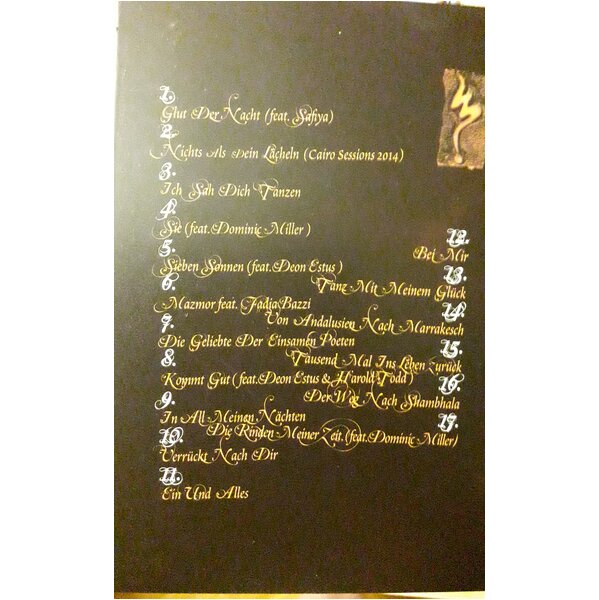 1.
Glut Der Nacht (feat. Safiya)
2.
Nichts Als Dein Lächeln (Cairo Sessions 2014)
3.
Ich Sah Dich Tanzen
4.
Sie (feat. Dominic Miller)
5.
Sieben Sonnen (feat. Deon Estus)
6.
Mazmor feat. Fadia Bazzi
7.
Die Geliebte Der Einsamen Poeten
8.
Kommt Gut (feat. Deon Estus & Harold Todd)
9.
In All Meinen Nächten
10.
Verrückt Nach Dir
11.
Ein Und Alles
12.
Bei Mir
13.
Tanz Mit Meinem Glück
14.
Von Andalusien Nach Marrakesch
15.
Tausend Mal Ins Leben Zurück
16.
Der Weg Nach Shambhala
17.
Die Rinden Meiner Zeit (feat. Dominic Miller)